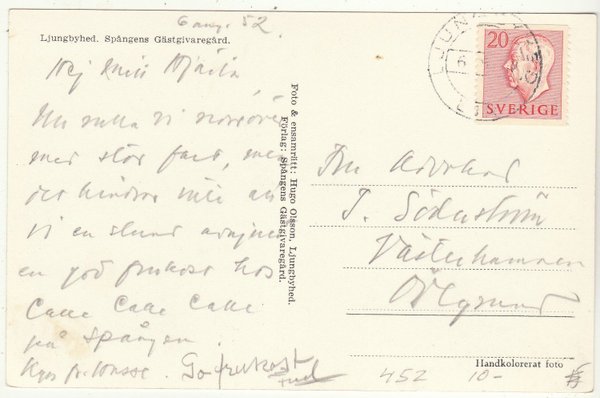 6 aug. 52.
Ljungbyhed. Spångens Gästgivaregård.
Hej
Nu rulla vi norröver
med stor fart, men
det hindrar inte att
vi en stund avnjuter
en god frukost hos
Calle Calle Calle
på Spången.
Go frukost
Foto & ensamrätt: Hugo Olsson, Ljungbyhed.
Förlag: Spångens Gästgivaregård.
20
SVERIGE
Fru Advokat
T. Söderström
Västerhamnen
Handkolorerat foto
452 10-